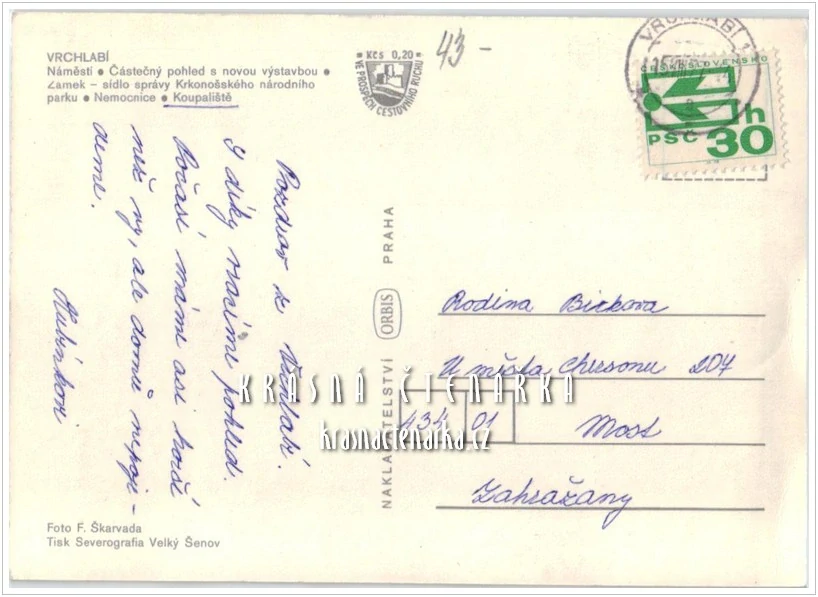 VRCHLABÍ
Náměstí ● Částečný pohled s novou výstavbou ●
Zámek – sídlo správy Krkonošského národního
parku ● Nemocnice ● Koupaliště
● Kčs 0,20 ●
VE PROSPĚCH CESTOVNÍHO RUCHU
43 –
VRCHLABÍ 1
ČESKOSLOVENSKO
PSČ 30h
Pozdrav z Vrchlabí.
I díky za pohled.
Počasí máme asi horší
než vy, ale domů nepoje-
deme.
NAKLADATELSTVÍ ORBIS PRAHA
Rodina
U města Chersonu 207
434 01 Most
Zahražany
KRÁSNÁ ČTENÁŘKA
krasnactenarka.cz
Foto F. Škarvada
Tisk Severografia Velký Šenov